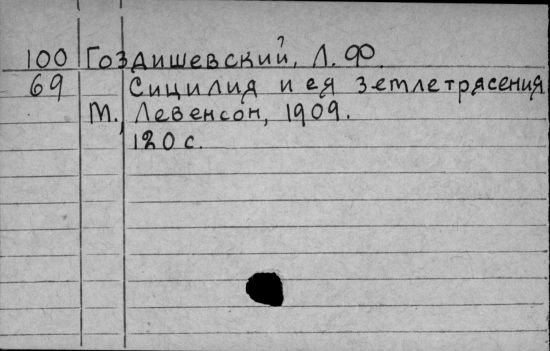 100 Гоздишевский, Л. Ф.
69 Сицилия и ея землетрясения
М., Левенсон, 1909.
120 с.